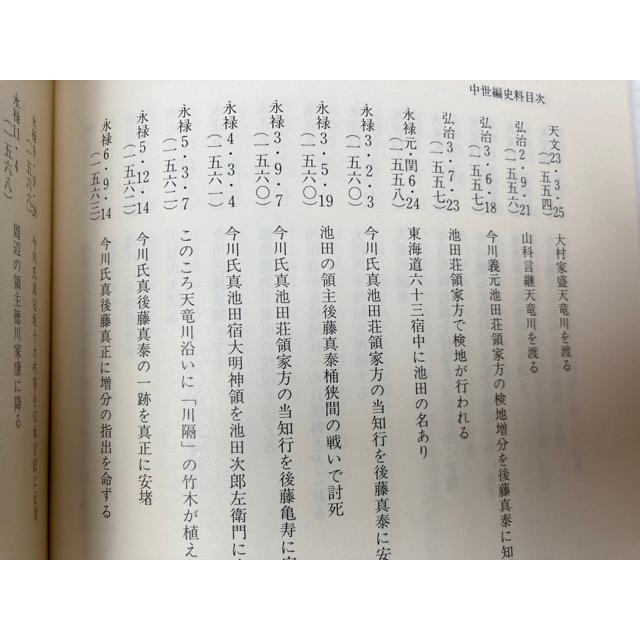 中世編史料目次
天文23・3・25 大村家盛天竜川を渡る
(一五五四)
弘治2・9・21 山科言継天竜川を渡る
弘治3・6・18 今川義元池田荘領家方の検地増分を後藤真泰に知
(一五五七)
弘治3・7・23 池田荘領家方で検地が行われる
(一五五七)
永禄元・閏6・24 東海道六十三宿中に池田の名あり
(一五五八)
永禄3・2・3 今川氏真池田荘領家方の当知行を後藤真泰に安
(一五六〇)
永禄3・5・19 池田の領主後藤真泰桶狭間の戦いで討死
(一五六〇)
永禄3・9・7 今川氏真池田荘領家方の当知行を後藤亀寿に
(一五六〇)
永禄4・3・4 今川氏真池田宿大明神領を池田次郎左衛門に
(一五六一)
永禄5・3・7 このころ天竜川沿いに「川隔」の竹木が植え
(一五六二)
永禄5・12・14 今川氏真後藤真泰の一跡を真正に安堵
(一五六二)
永禄6・9・14 今川氏真後藤真正に増分の指出を命ずる
(一五六三)
永禄11・4 周辺の領主徳川家康に降る
(一五六八)